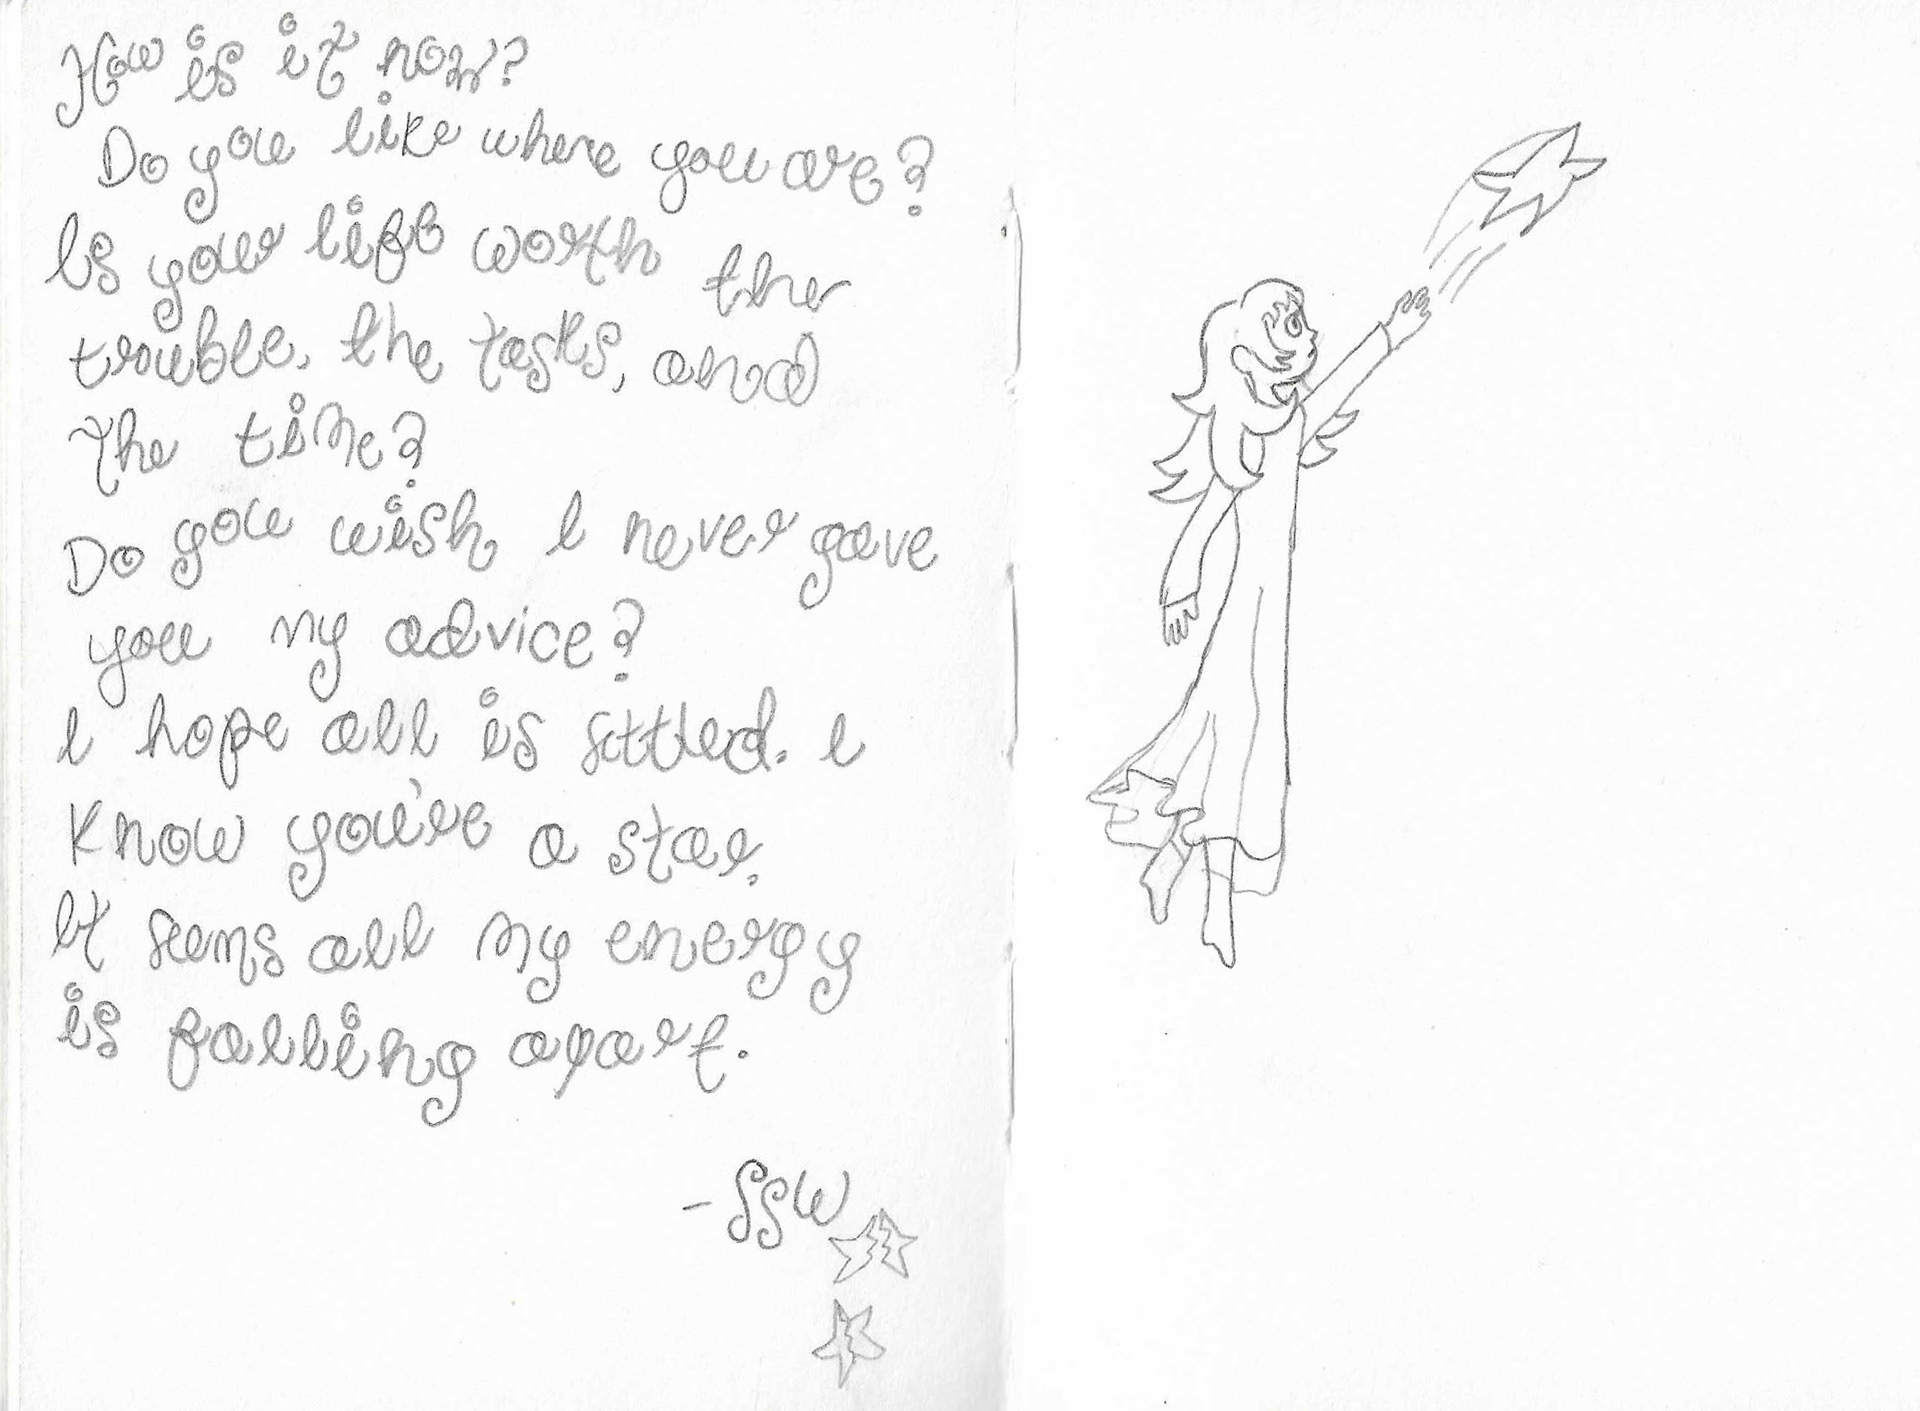 How is it now?
Do you like where you are?
Is your life worth the
trouble, the tasks, and
the time?
Do you wish I never gave
you my advice?
I hope all is settled. I
know you're a star.
It seems all my energy
is falling apart.
- SSW